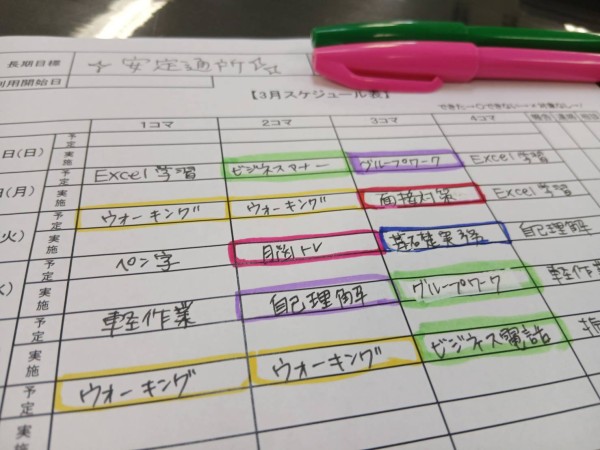 長期目標 安定通所
利用開始日
【3月スケジュール表】
できた→○できない→×対象なし→
1コマ 2コマ 3コマ 4コマ
日(日) 予定 Excel学習 ビジネスマナー グループワーク Excel学習
実施
(月) 予定 ウォーキング ウォーキング 面接対策 Excel学習
実施
火) 予定 ペン字 脳トレ 自己理解
実施
予定 軽作業 自己理解 グループワーク 軽作業
実施
予定 ウォーキング ウォーキング ビジネス電話
実施